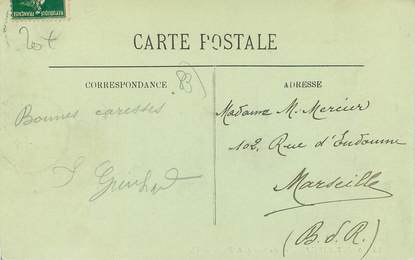 RÉPUBLIQUE FRANÇAISE
20x
CARTE POSTALE
CORRESPONDANCE
ADRESSE
Bonnes caresses
Madame M. Mercier
102, Rue d'Endoume
Marseille
(B. d. R.)